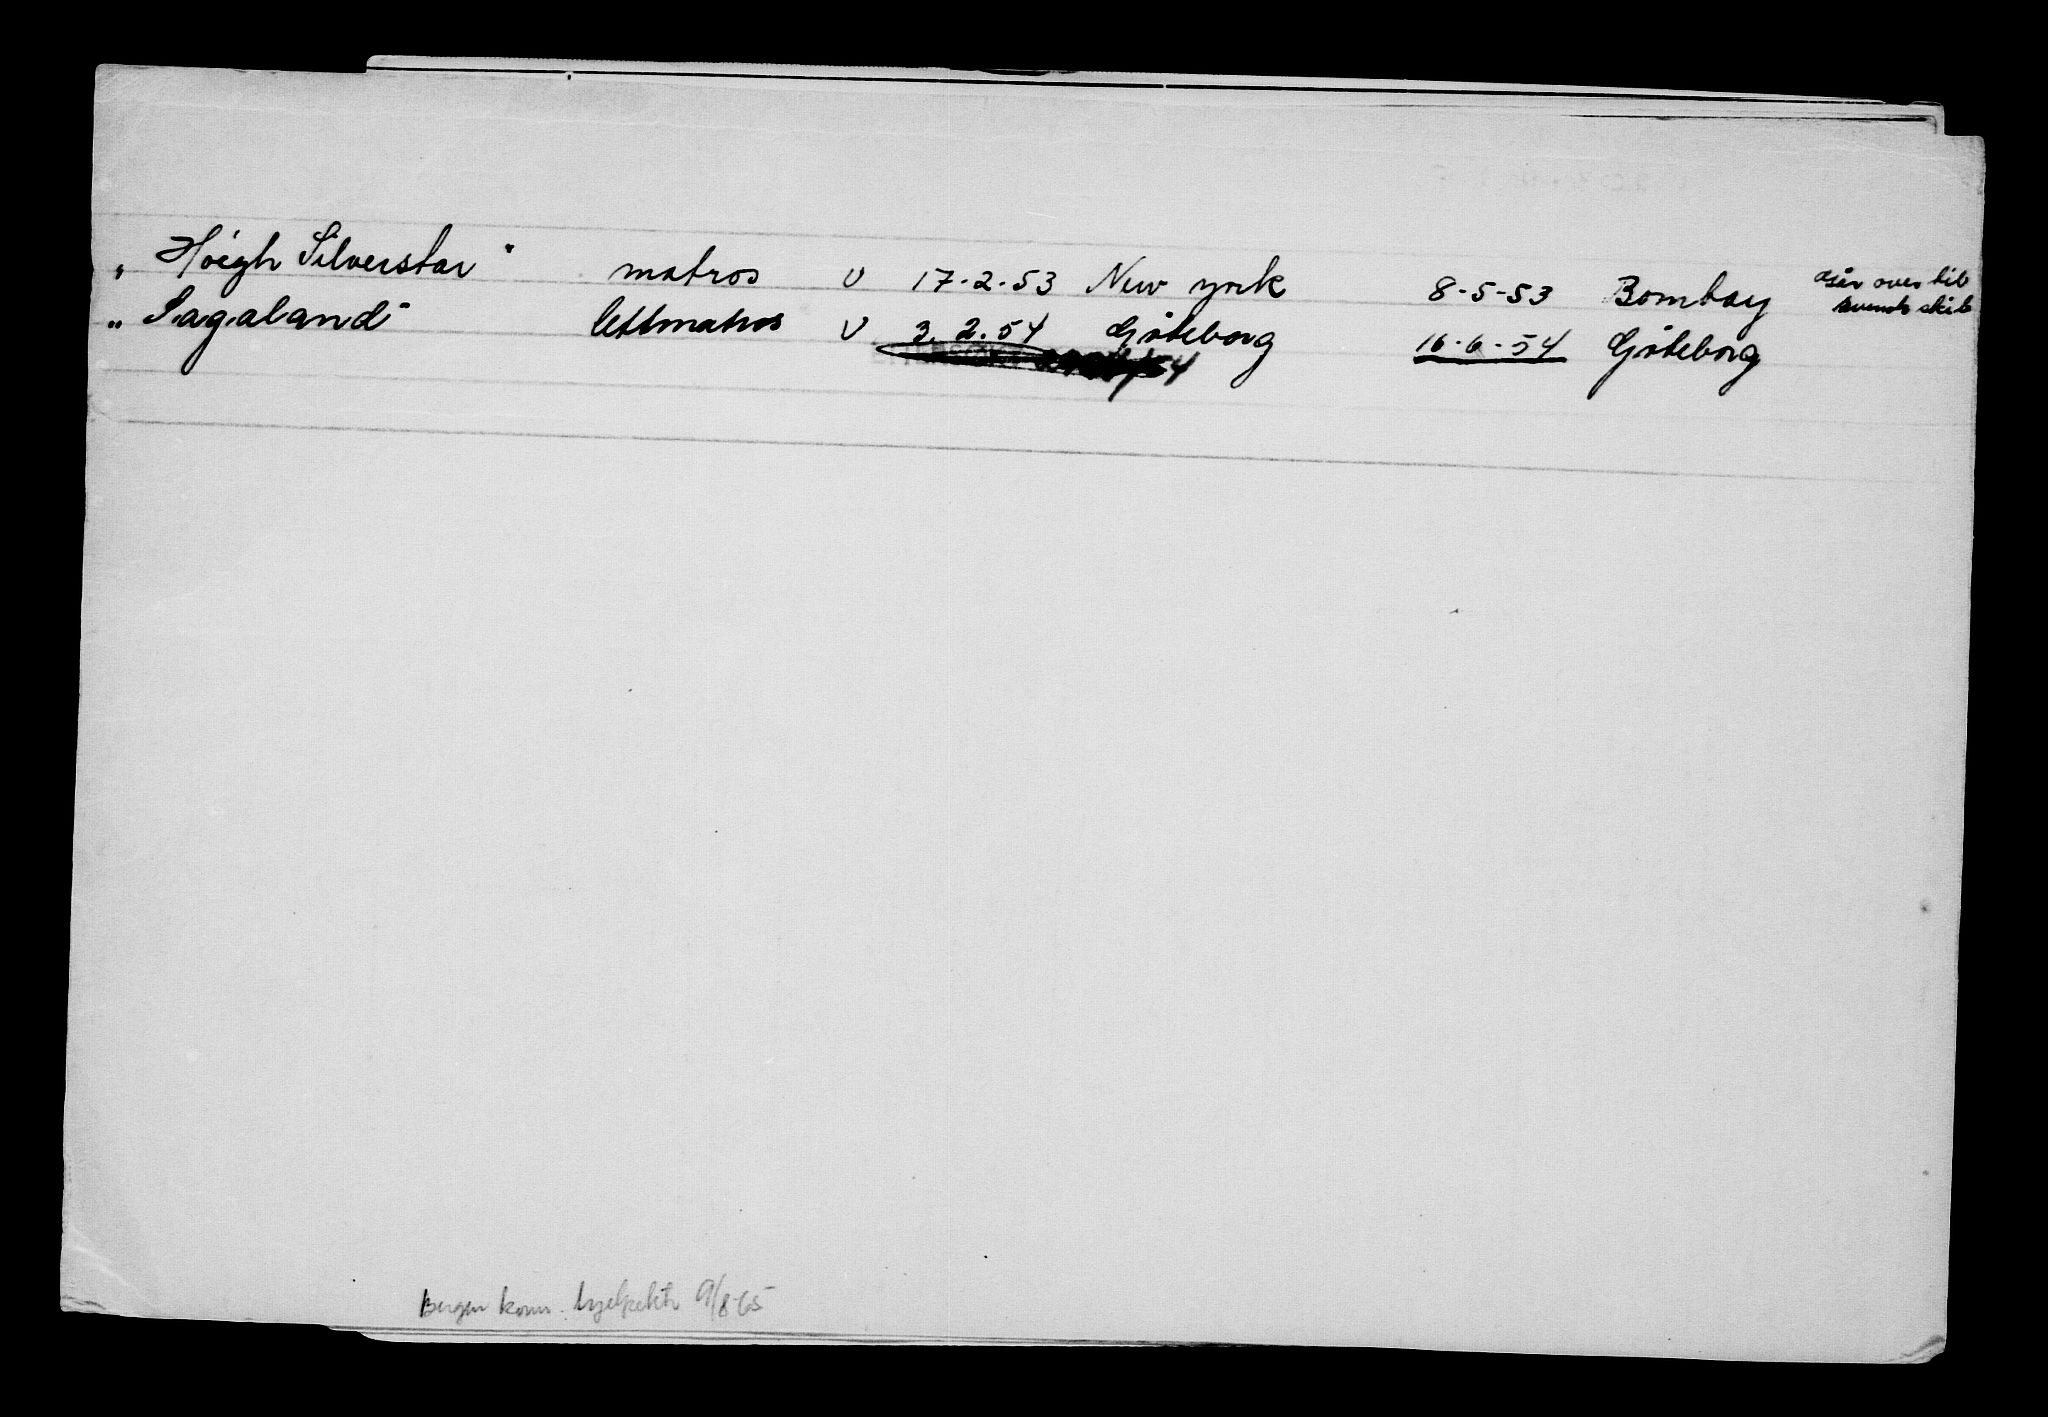 „ Höegh Silverstar" matros U 17-2-53 New york 8-5-53 Bombay går over til svensk skib
„ Sagaland" lettmatros U 3.2.54 Göteborg 16-6-54 Göteborg
Bergen komm. 9/8-65